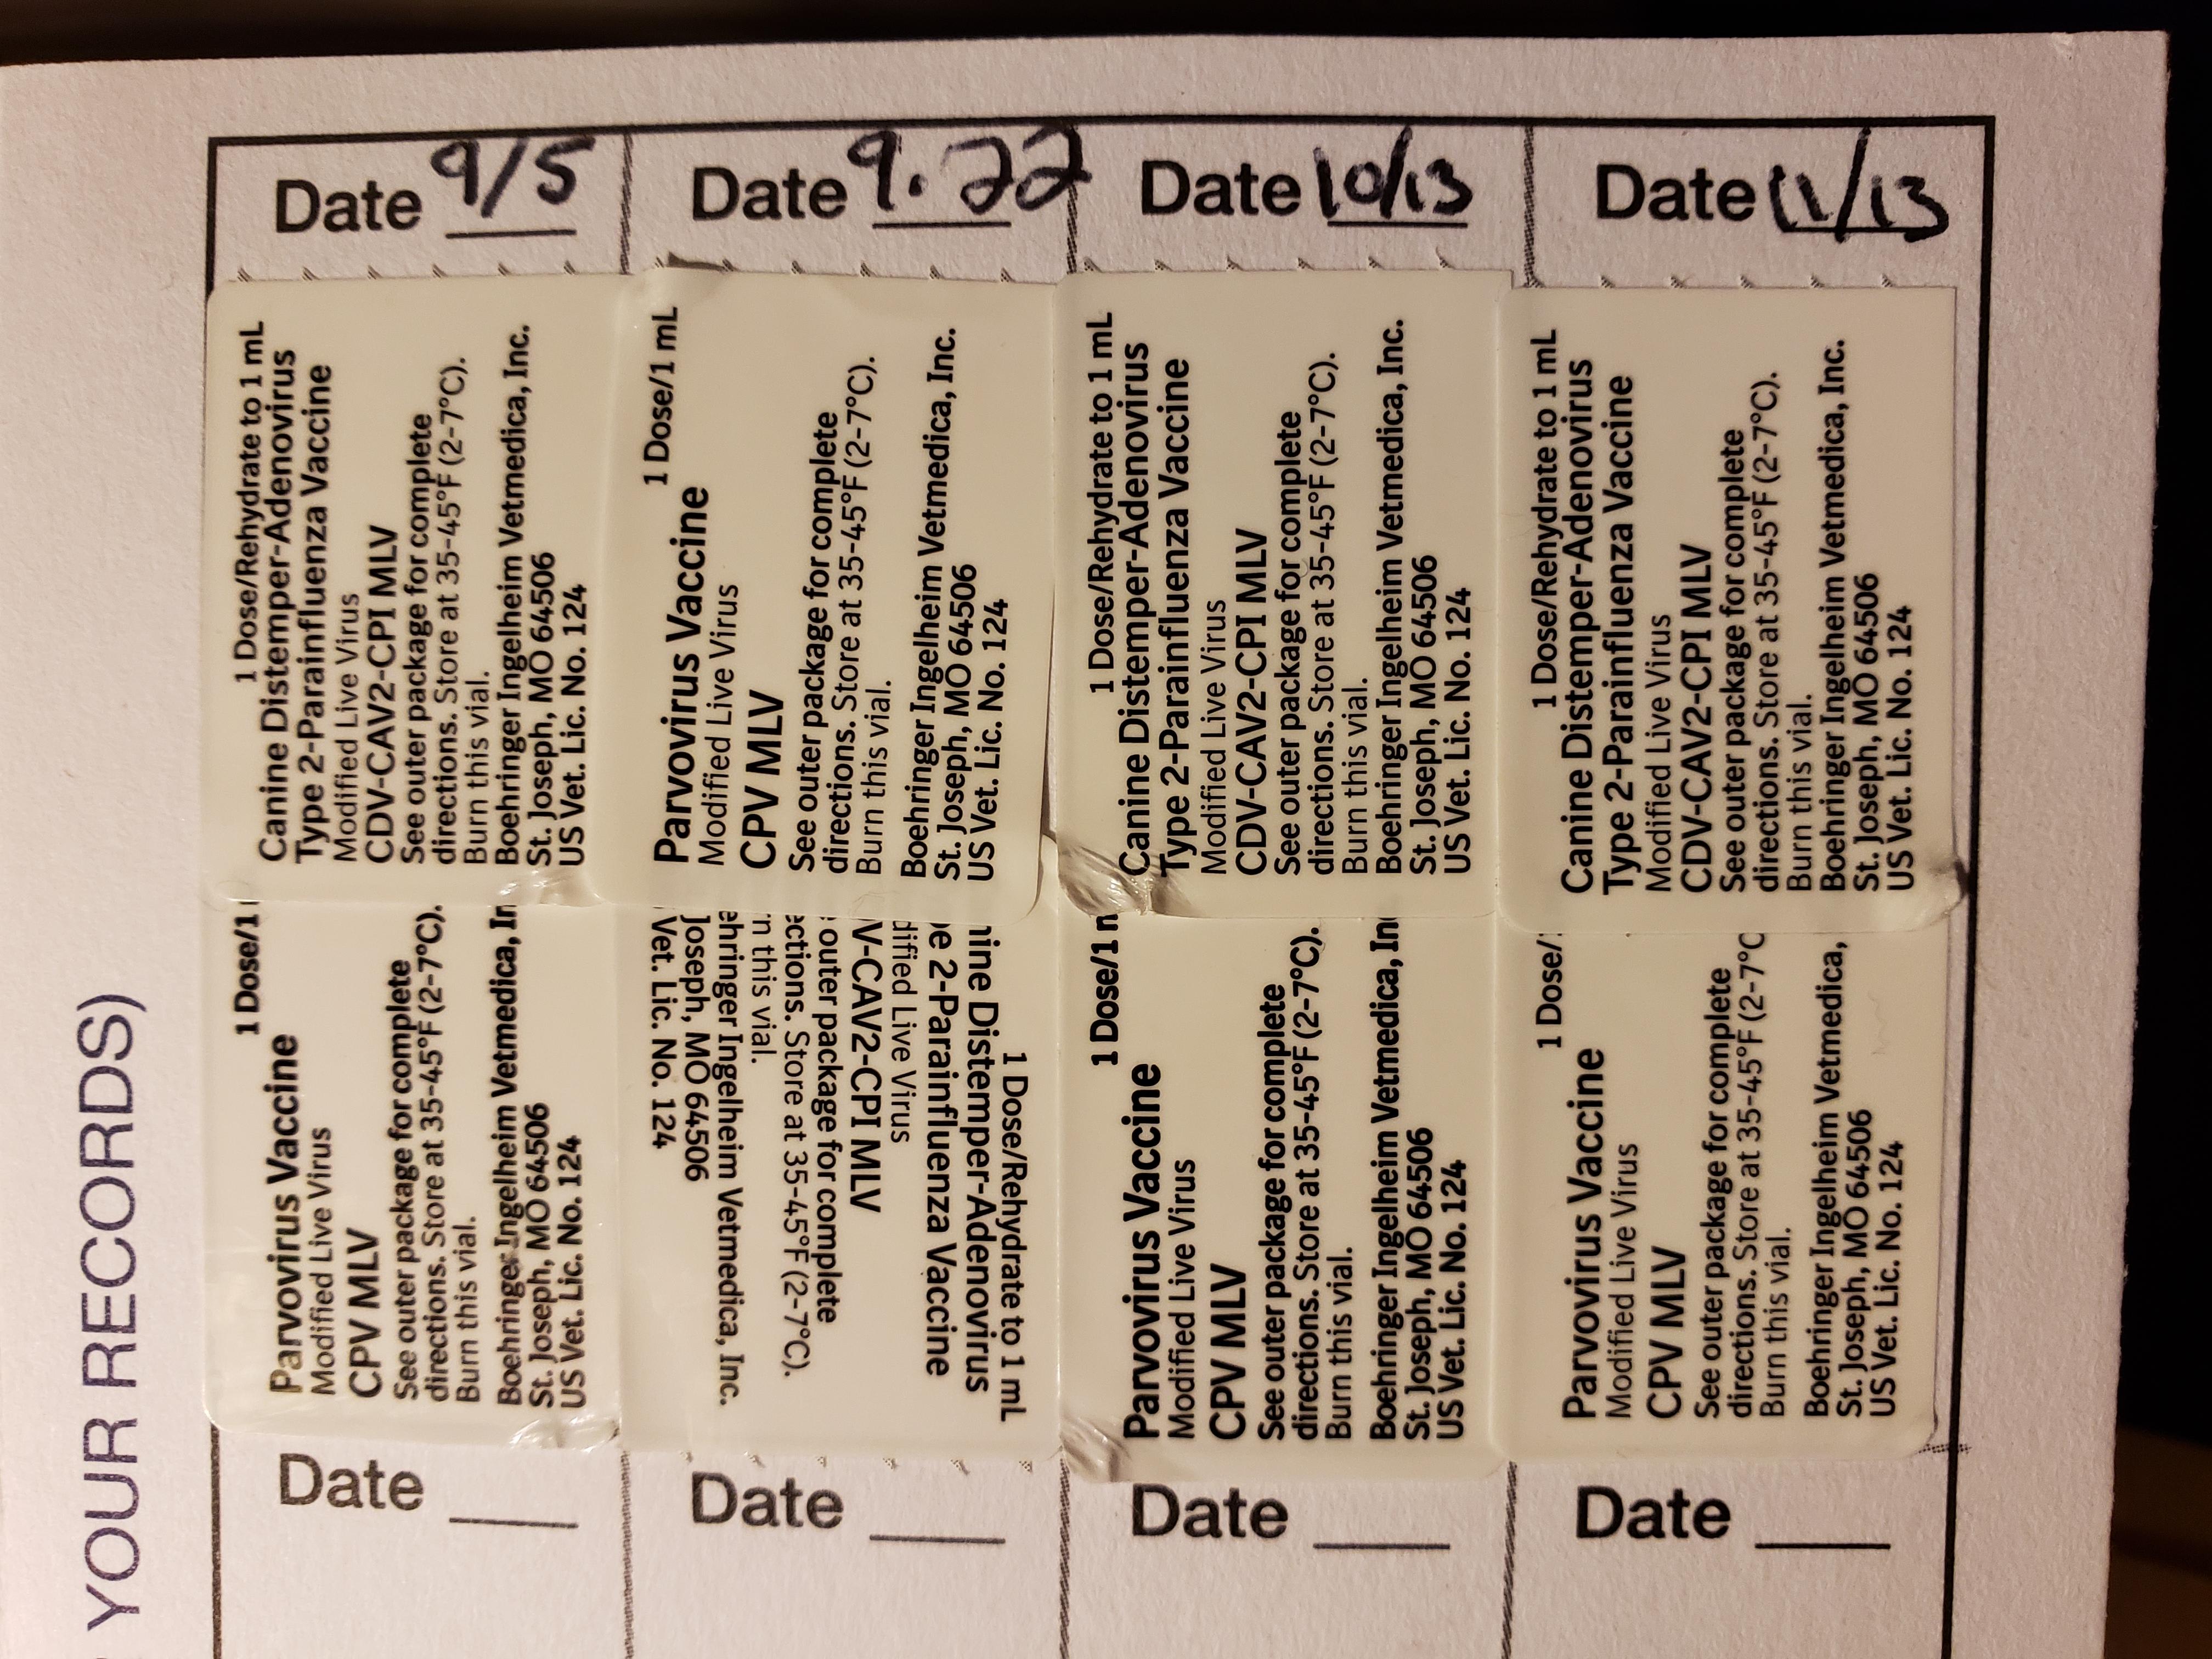 YOUR RECORDS)
Date 9/5
1 Dose/Rehydrate to 1 mL
Canine Distemper-Adenovirus
Type 2-Parainfluenza Vaccine
Modified Live Virus
CDV-CAV2-CPI MLV
See outer package for complete
directions. Store at 35-45°F (2-7°C).
Burn this vial.
Boehringer Ingelheim Vetmedica, Inc.
St. Joseph, MO 64506
US Vet. Lic. No. 124
1 Dose/1
Parvovirus Vaccine
Modified Live Virus
CPV MLV
See outer package for complete
directions. Store at 35-45°F (2-7°C).
Burn this vial.
Boehringer Ingelheim Vetmedica, In
St. Joseph, MO 64506
US Vet. Lic. No. 124
Date
Date 9.22
1 Dose/1 mL
Parvovirus Vaccine
Modified Live Virus
CPV MLV
See outer package for complete
directions. Store at 35-45°F (2-7°C).
Burn this vial.
Boehringer Ingelheim Vetmedica, Inc.
St. Joseph, MO 64506
US Vet. Lic. No. 124
1 Dose/Rehydrate to 1 mL
nine Distemper-Adenovirus
e 2-Parainfluenza Vaccine
dified Live Virus
V-CAV2-CPI MLV
outer package for complete
ections. Store at 35-45°F (2-7°C).
n this vial.
ehringer Ingelheim Vetmedica, Inc.
Joseph, MO 64506
Vet. Lic. No. 124
Date
Date 10/13
1 Dose/Rehydrate to 1 mL
Canine Distemper-Adenovirus
Type 2-Parainfluenza Vaccine
Modified Live Virus
CDV-CAV2-CPI MLV
See outer package for complete
directions. Store at 35-45°F (2-7°C).
Burn this vial.
Boehringer Ingelheim Vetmedica, Inc.
St. Joseph, MO 64506
US Vet. Lic. No. 124
1 Dose/1 m
Parvovirus Vaccine
Modified Live Virus
CPV MLV
See outer package for complete
directions. Store at 35-45°F (2-7°C).
Burn this vial.
Boehringer Ingelheim Vetmedica, In
St. Joseph, MO 64506
US Vet. Lic. No. 124
Date
Date 11/13
1 Dose/Rehydrate to 1 mL
Canine Distemper-Adenovirus
Type 2-Parainfluenza Vaccine
Modified Live Virus
CDV-CAV2-CPI MLV
See outer package for complete
directions. Store at 35-45°F (2-7°C).
Burn this vial.
Boehringer Ingelheim Vetmedica, Inc.
St. Joseph, MO 64506
US Vet. Lic. No. 124
1 Dose/
Parvovirus Vaccine
Modified Live Virus
CPV MLV
See outer package for complete
directions. Store at 35-45°F (2-7°C
Burn this vial.
Boehringer Ingelheim Vetmedica,
St. Joseph, MO 64506
US Vet. Lic. No. 124
Date